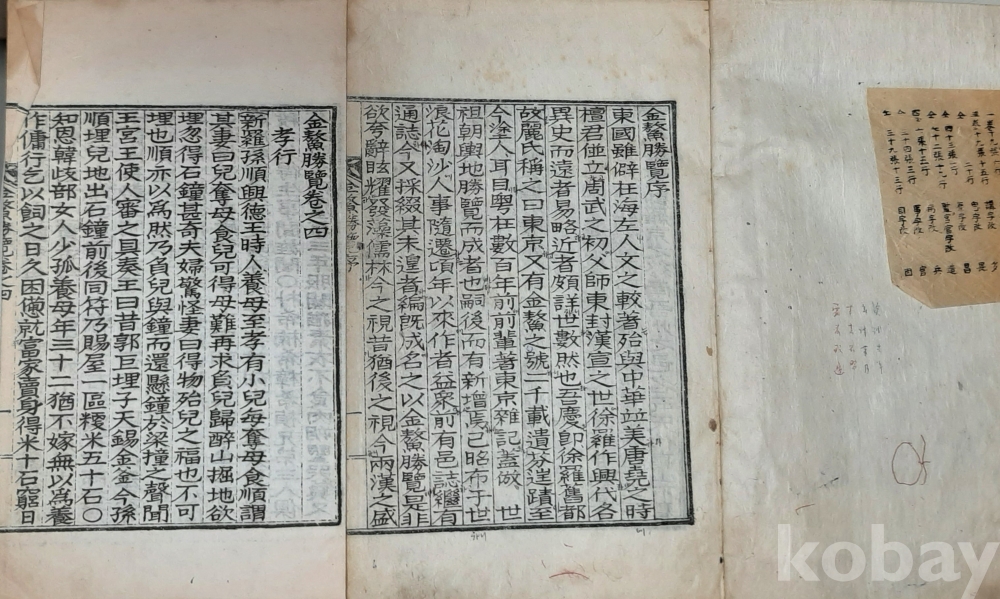 金鰲勝覽序
東國雖僻在海左人文之較著殆與中華竝美唐堯之時
檀君竝立周武之初父師東封漢宣之世徐羅作興代各
異史而遠者易略近者頗詳世數然也吾慶卽徐羅舊都
故麗氏稱之曰東京又有金鰲之號一千載遺芬逞蹟至
今塗人耳目粤在數百年前前輩著東京雜記蓋倣 世
祖朝輿地勝覽而成者也嗣後而有新增焉已昭布于世
浪花淘沙人事隨遷頃年以來作者益衆前有邑誌繼有
通誌今又採綴其未遑者編旣成名之以金鰲勝覽是非
欲夸辭眩耀發藻儒林今之視昔猶後之視今兩漢之盛
金鰲勝覽序
金鰲勝覽卷之四
孝行
新羅孫順興德王時人養母至孝有小兒每奪母食順謂
其妻曰兒奪母食兒可得母難再求負兒歸醉山掘地欲
埋忽得石鐘甚奇夫婦驚怪妻曰得物殆兒之福也不可
埋也順亦以爲然乃負兒與鐘而還懸鐘於梁撞之聲聞
王宮王使人審之具奏王曰昔郭巨埋子天錫金釜今孫
順埋兒地出石鐘前後同符乃賜屋一區粳米五十石〇
知恩韓歧部女人少孤養母年三十二猶不嫁無以爲養
作傭行乞以飼之日久困憊就富家賣身得米十石窮日
金鰲勝覽卷之四
kobay